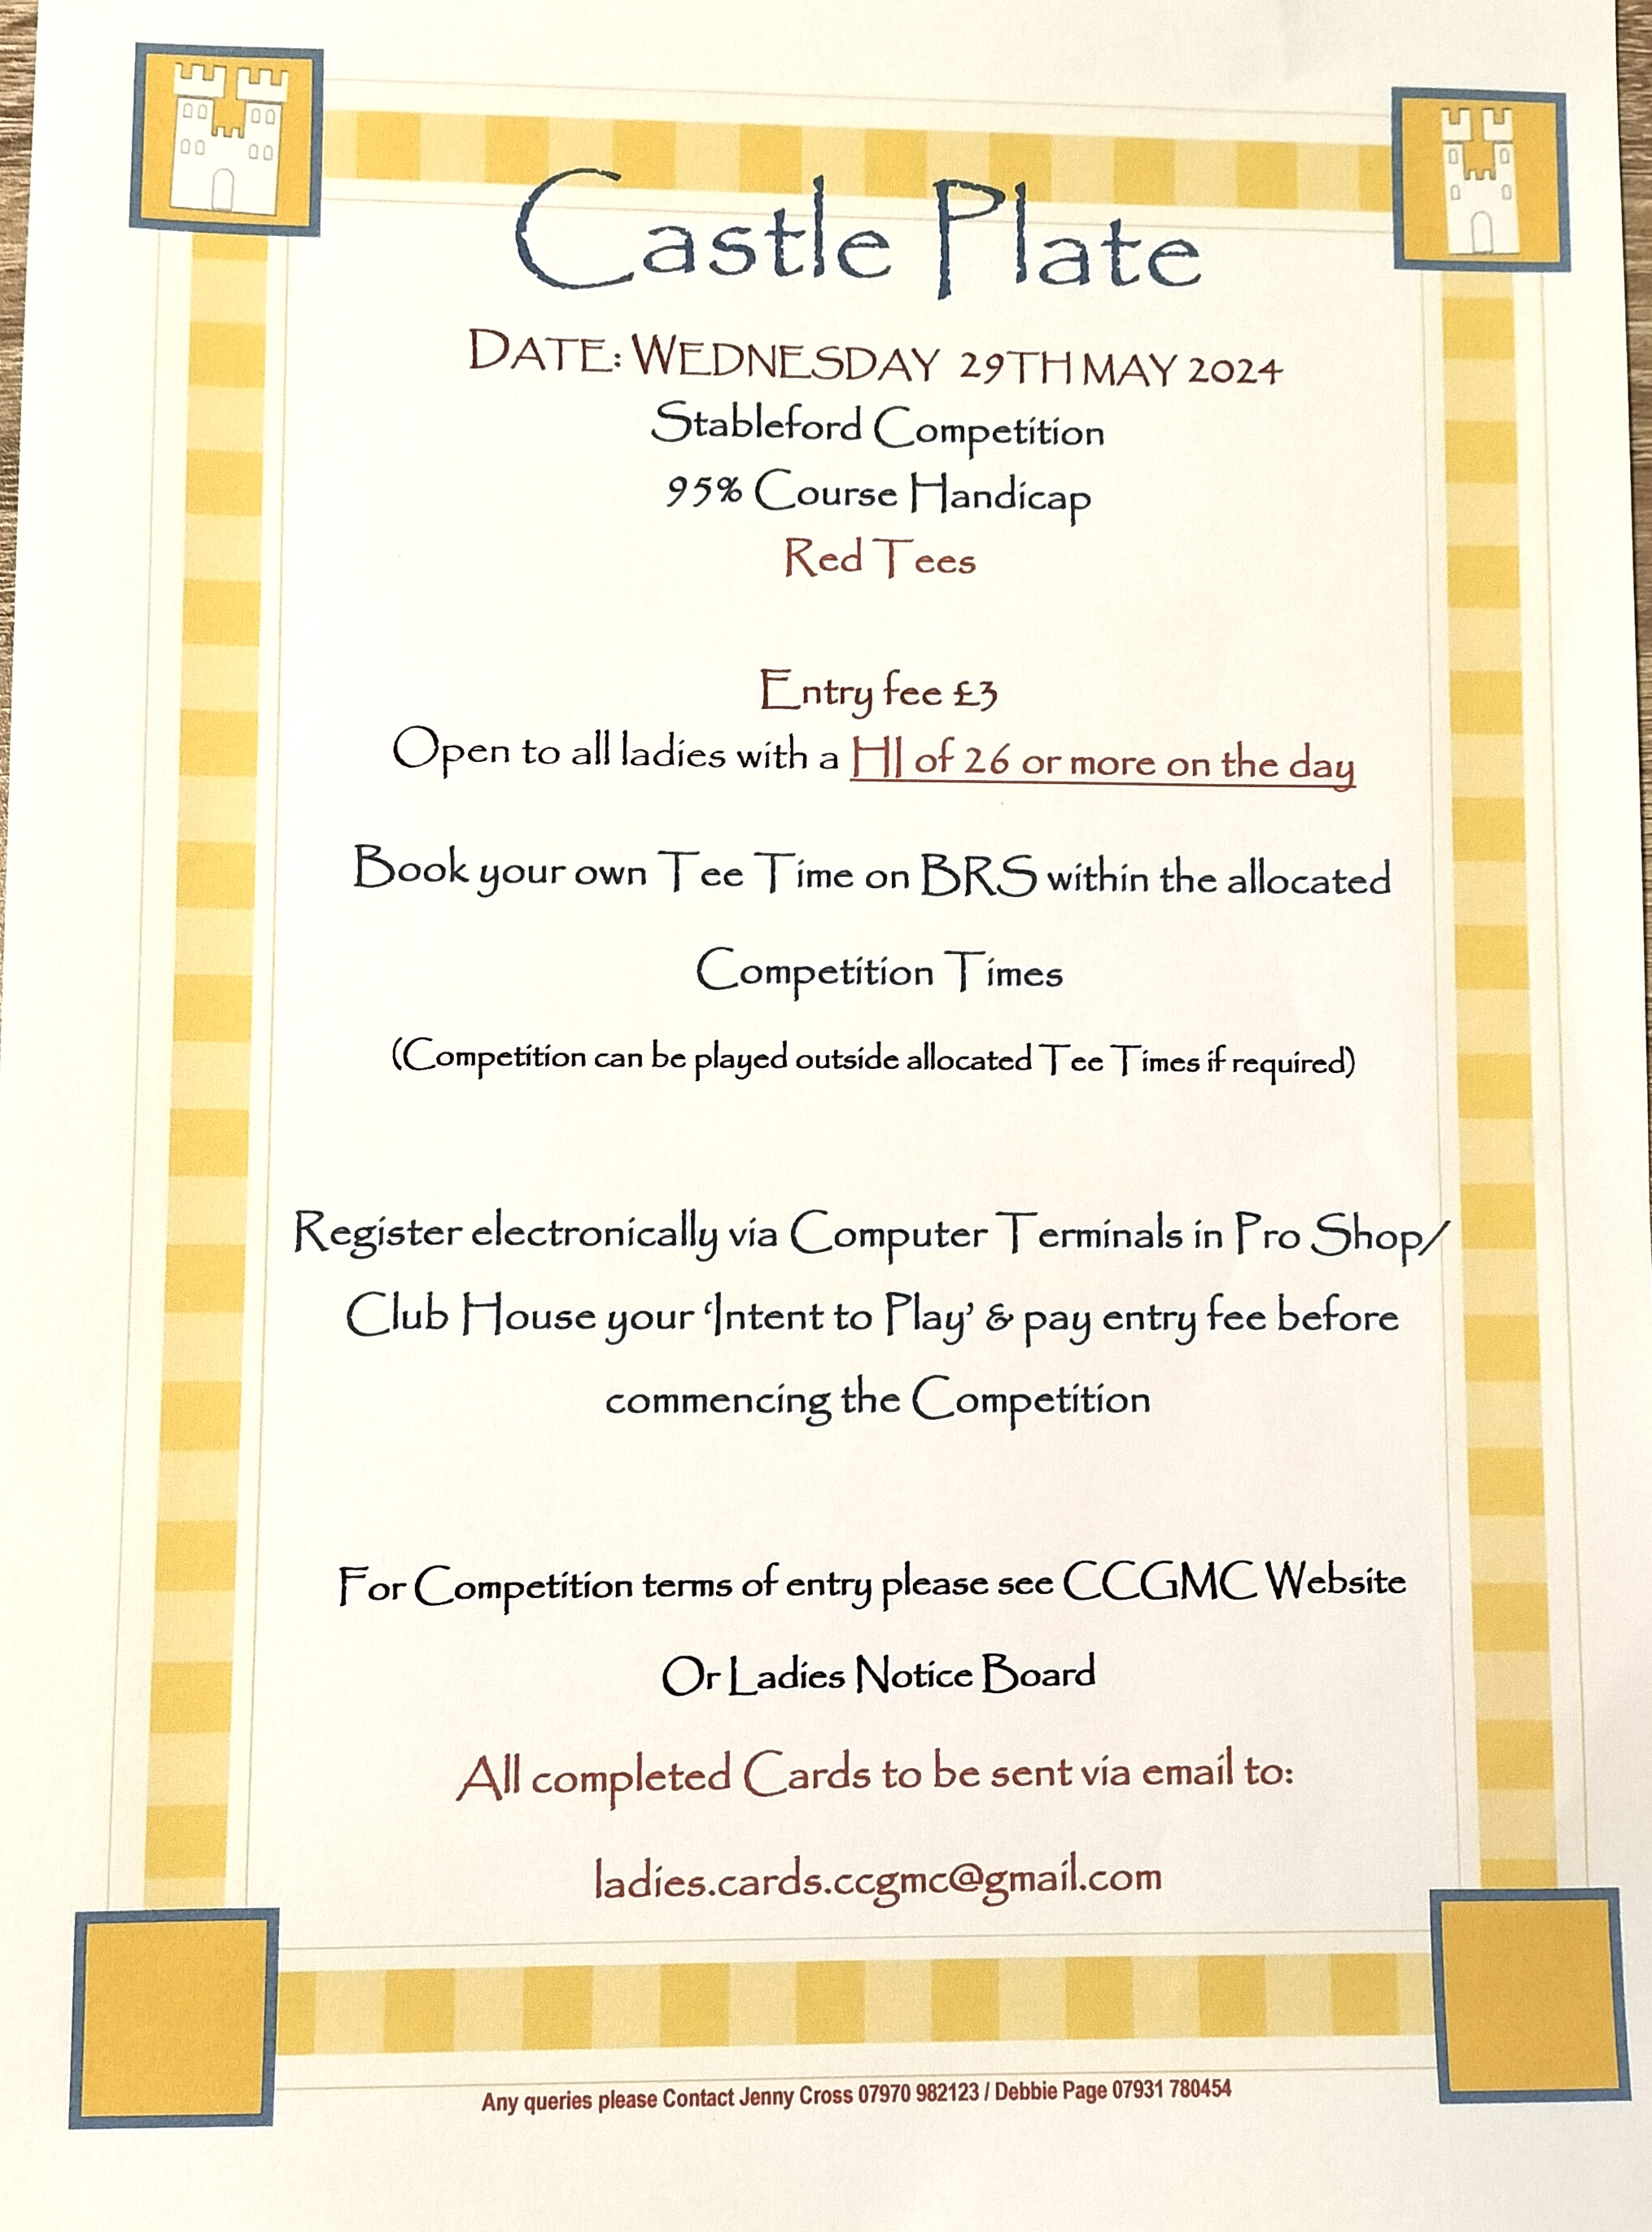 Castle Plate
DATE: WEDNESDAY 29TH MAY 2024
Stableford Competition
95% Course Handicap
Red Tees
Entry fee £3
Open to all ladies with a HI of 26 or more on the day
Book your own Tee Time on BRS within the allocated
Competition Times
(Competition can be played outside allocated Tee Times if required)
Register electronically via Computer Terminals in Pro Shop/
Club House your ‘Intent to Play’ & pay entry fee before
commencing the Competition
For Competition terms of entry please see CCGMC Website
Or Ladies Notice Board
All completed Cards to be sent via email to:
ladies.cards.ccgmc@gmail.com
Any queries please Contact Jenny Cross 07970 982123 / Debbie Page 07931 780454